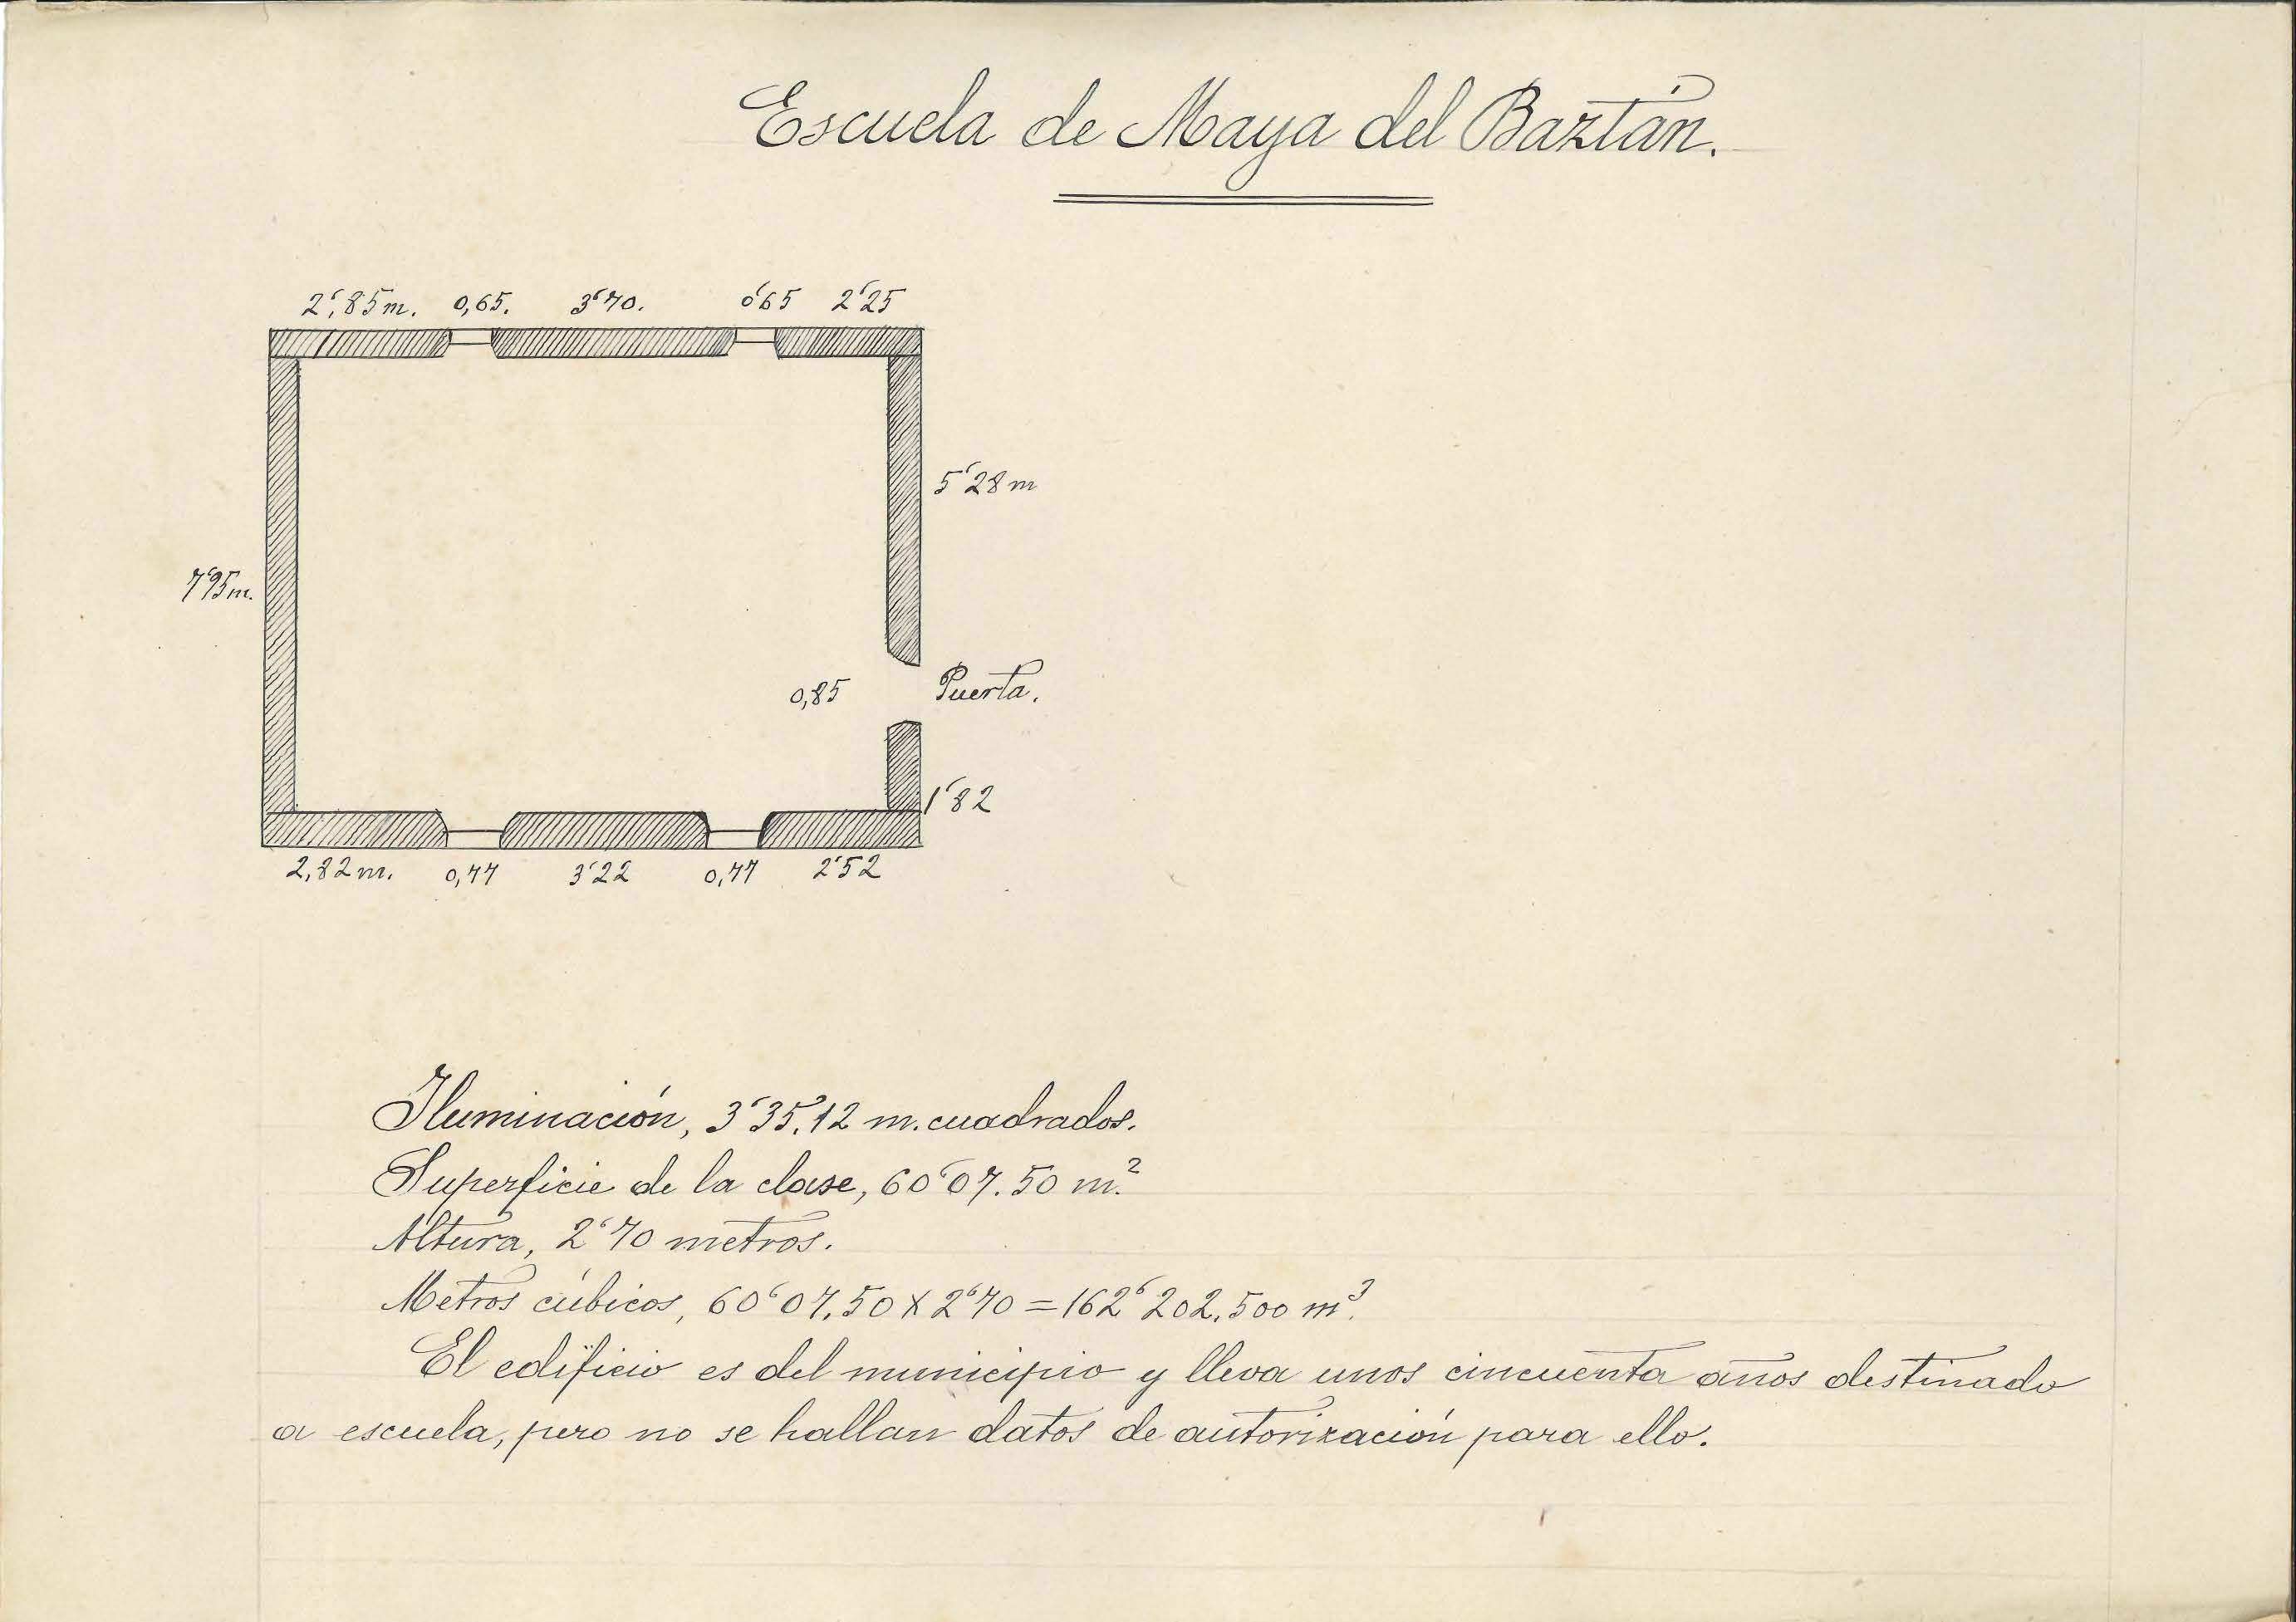 Escuela de Maya del Baztán.
2‘,85 m. 0,65. 3‘70. 0‘65 2‘25
5‘28 m
7‘95 m.
0,85 Puerta.
1‘82
2,82 m. 0,77 3‘22 0,77 2‘52
Iluminación, 3‘35.12 m. cuadrados.
Superficie de la clase, 60‘07.50 m.²
Altura, 2‘70 metros.
Metros cúbicos, 60‘07.50 x 2‘70 = 162‘202.500 m³.
El edificio es del municipio y lleva unos cincuenta años destinado
a escuela, pero no se hallan datos de autorización para ello.